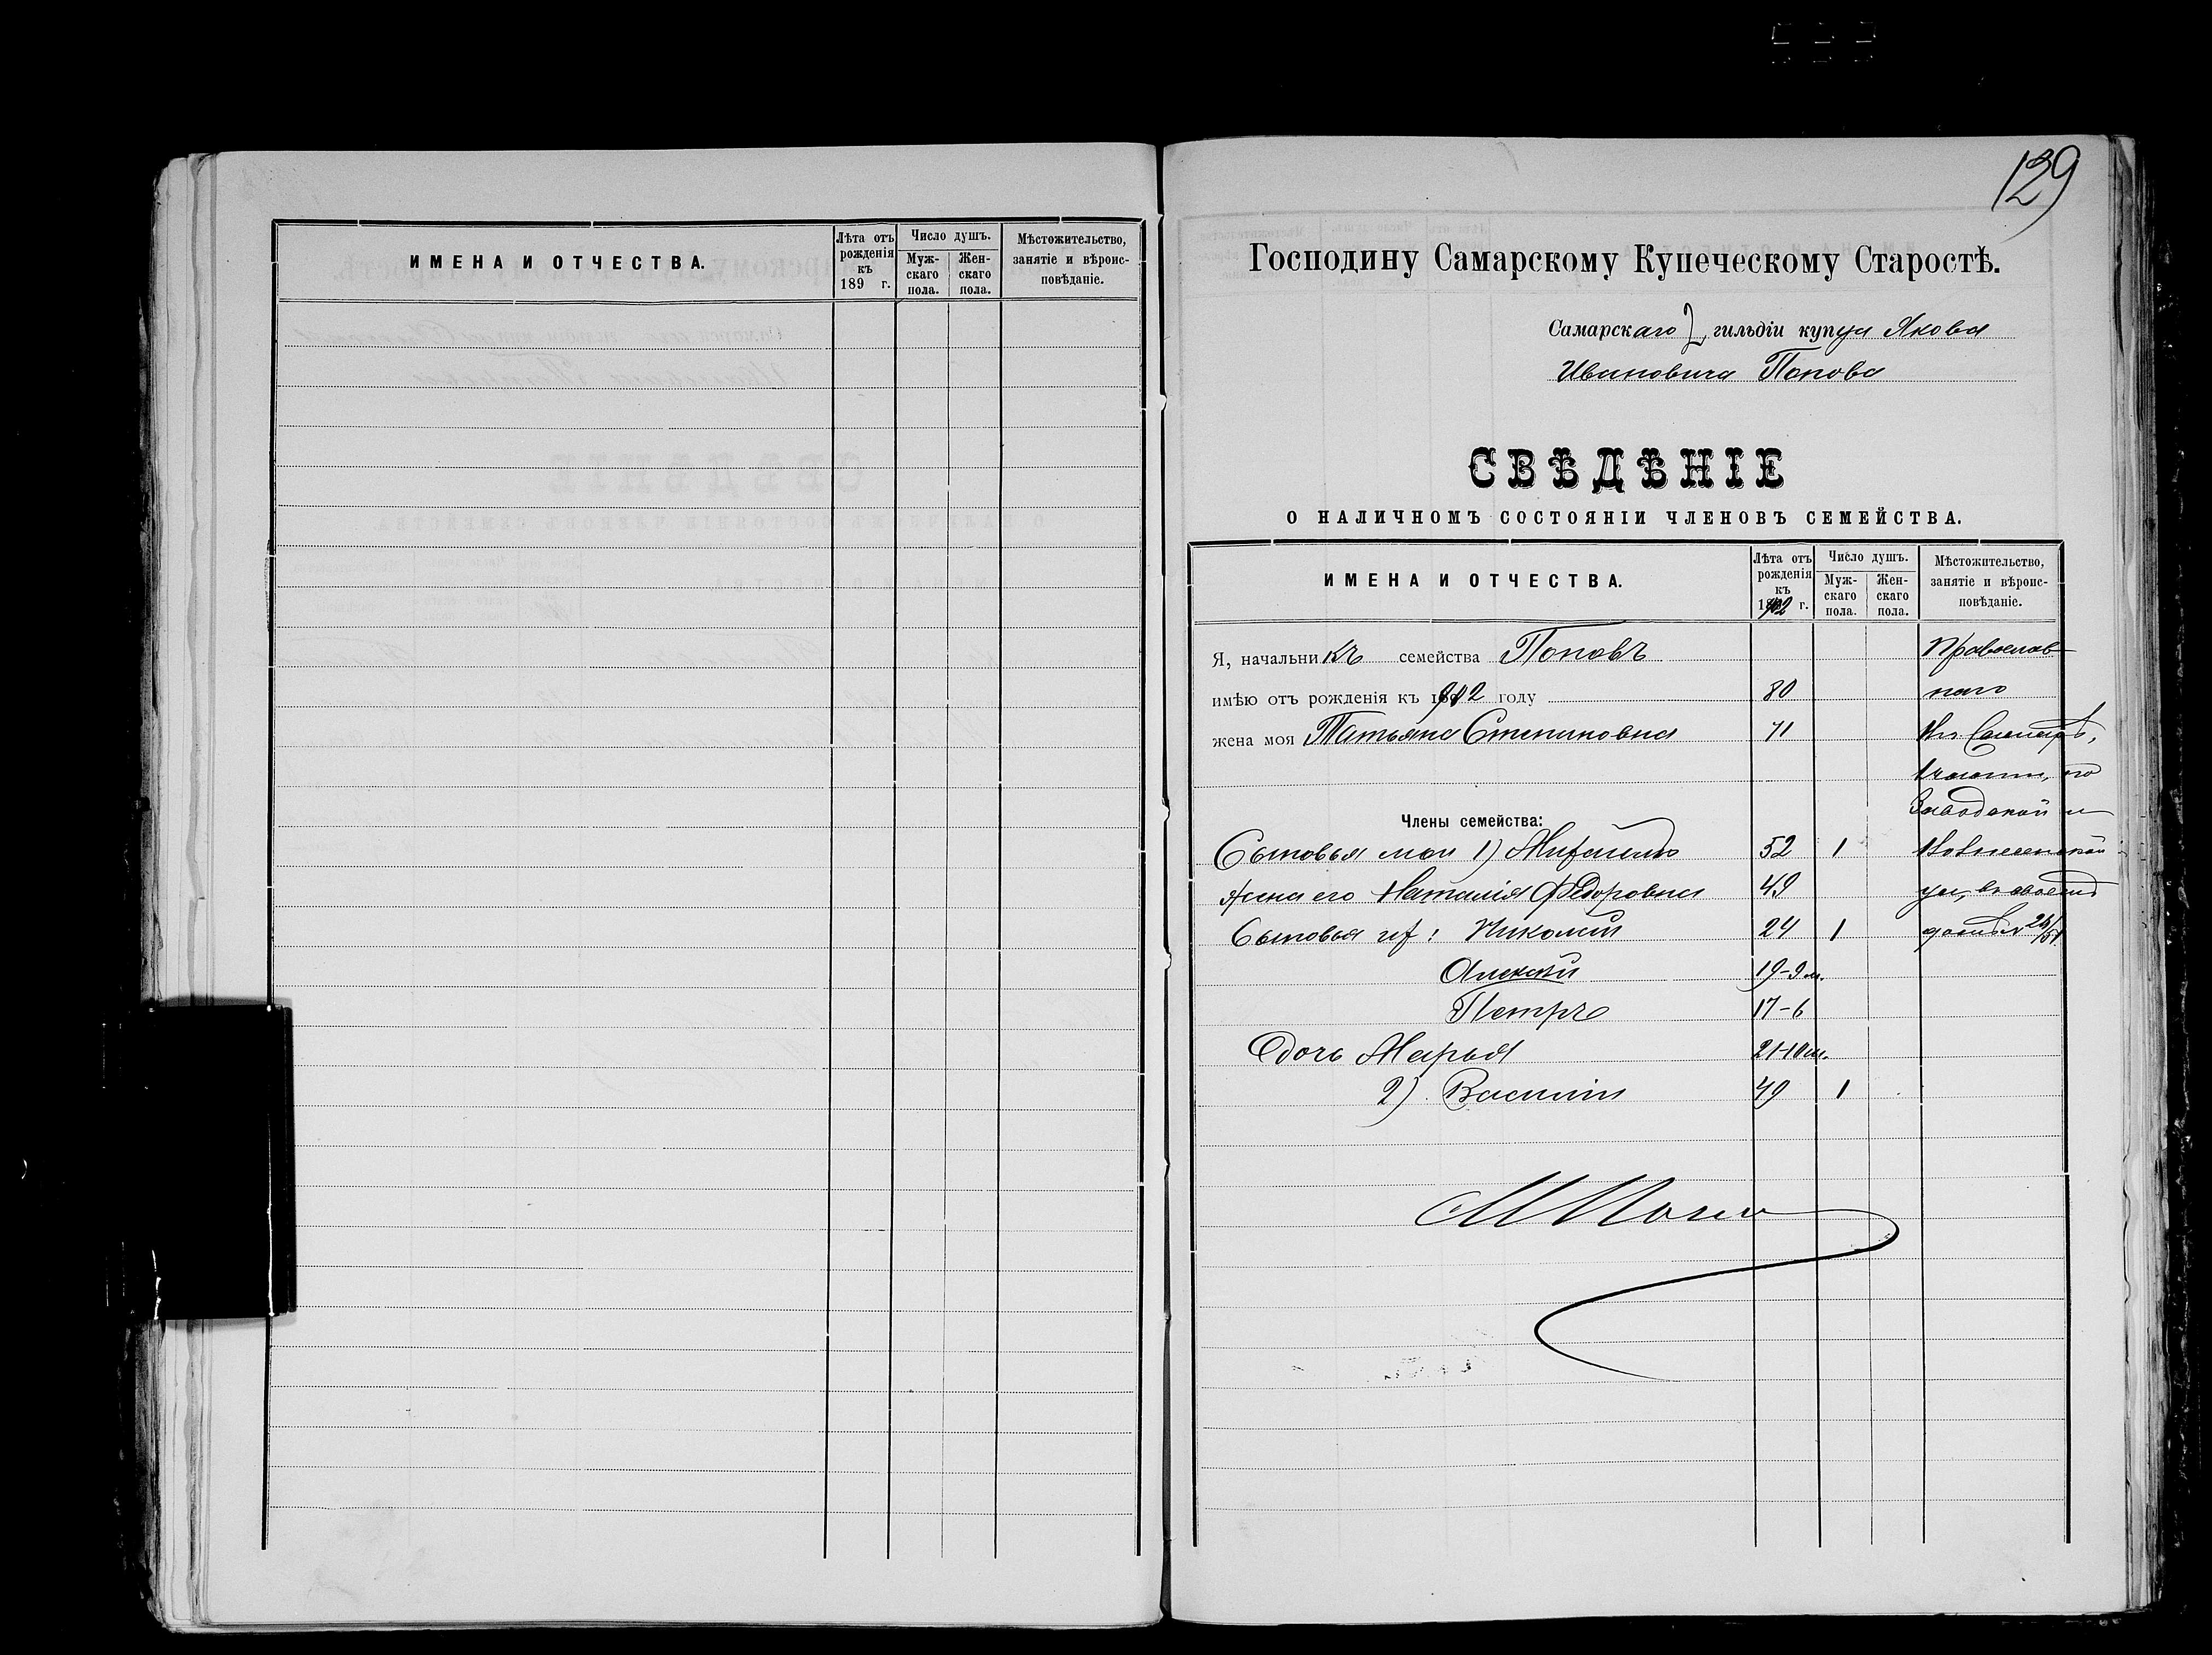 ИМЕНА И ОТЧЕСТВА.
Лѣта отъ рожденія къ 189 г.
Число душъ.
Муж-скаго пола.
Жен-скаго пола.
Мѣстожительство, занятіе и вѣроис-повѣданіе.
129
Господину Самарскому Купеческому Старостѣ.
Самарскаго 2 гильдіи купца Якова
Ивановича Попова
СВѢДѢНІЕ
О НАЛИЧНОМЪ СОСТОЯНІИ ЧЛЕНОВЪ СЕМЕЙСТВА.
ИМЕНА И ОТЧЕСТВА.
Лѣта отъ рожденія къ 1902 г.
Число душъ.
Муж-скаго пола.
Жен-скаго пола.
Мѣстожительство, занятіе и вѣроис-повѣданіе.
Я, начальникъ семейства Поповъ Православ-
имѣю отъ рожденія къ 1902 году 80 наго
жена моя Татьяна Степановна 71 Въ Самарѣ,
1 части, по
Заводской и
Члены семейства:
Сыновья мои 1) Михаилъ 52 1 Вознесенской
жена его Наталія Ѳедоровна 49 ул, въ своемъ
Сыновья ихъ: Николай 24 1 домѣ № 26/51
Алексѣй 19-9 м.
Петръ 17-6
дочь Марья 21-10 м.
2) Василій 49 1